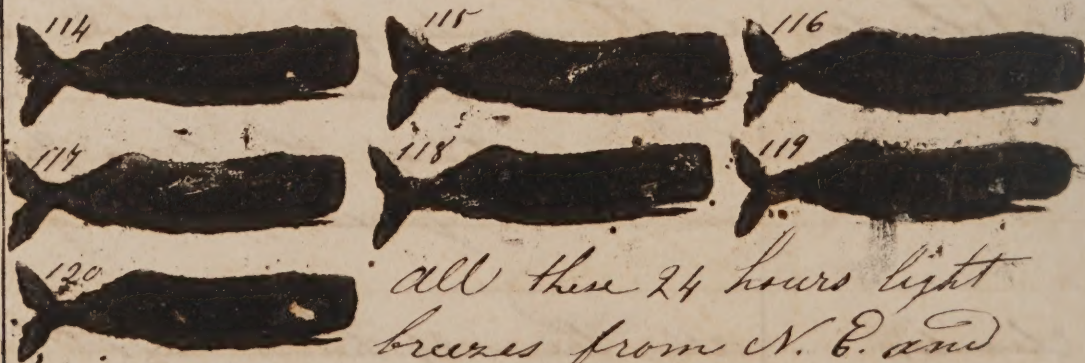 114 115 116
117 118 119
120
All these 24 hours light
breezes from N. E. and